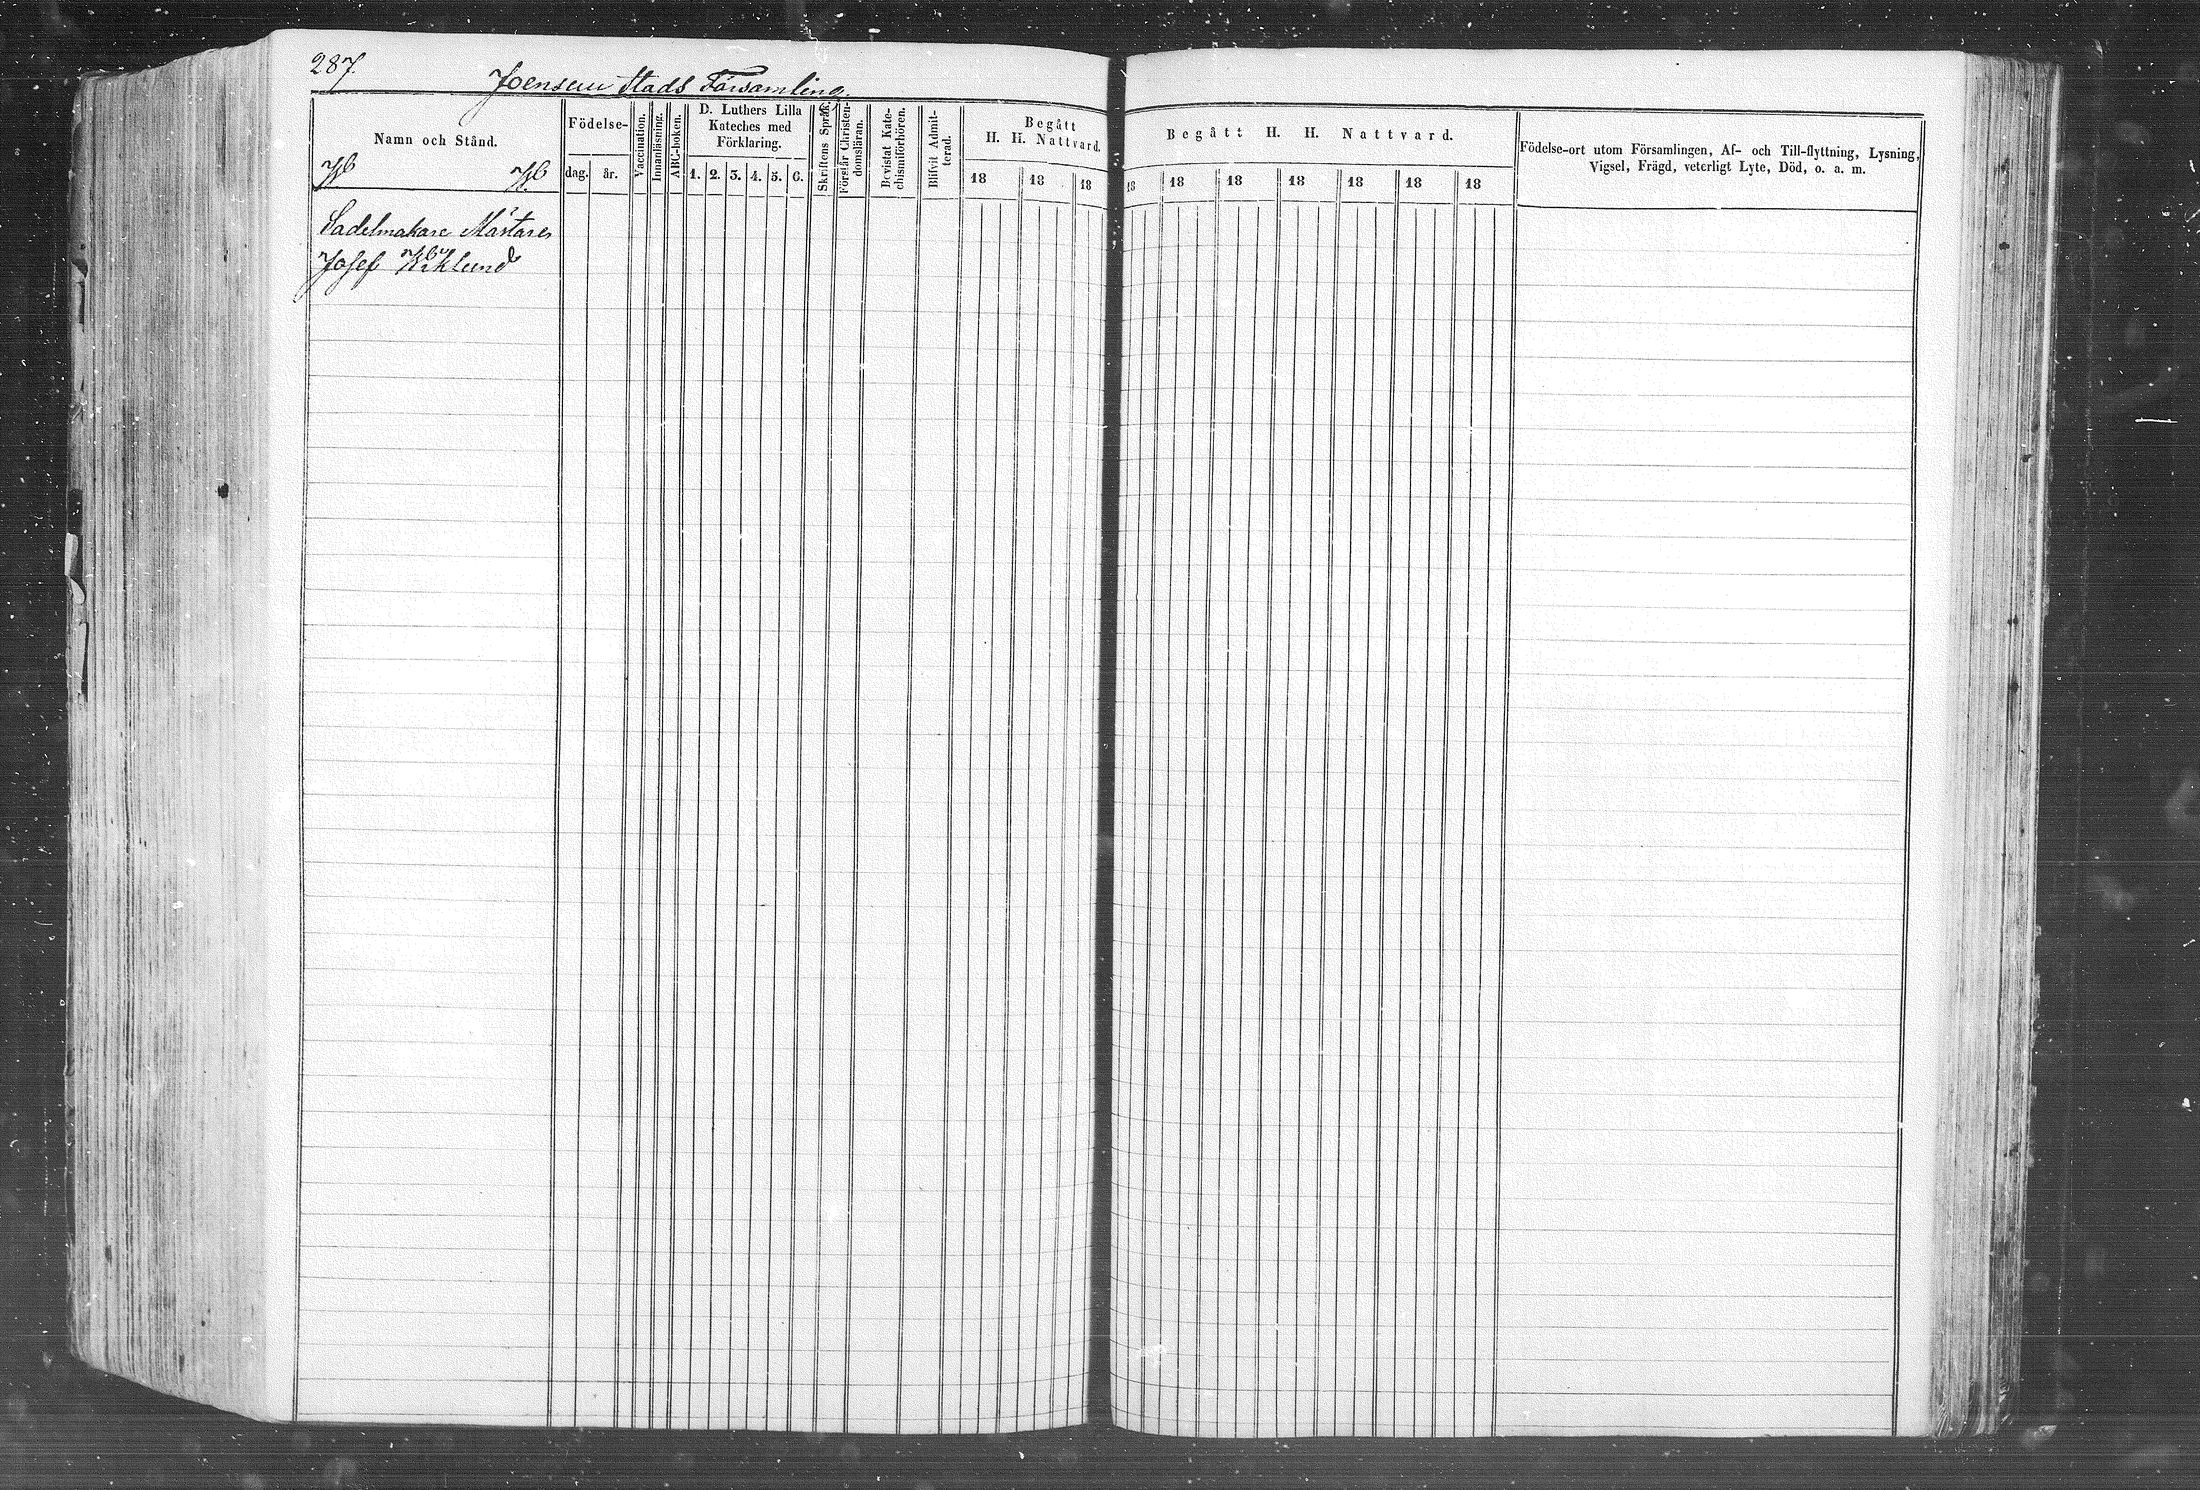 287.
Joensuu Stads Församling.
Namn och Stånd.
Födelse-
dag.
år.
Vaccination.
Innanläsning.
ABC-boken.
D. Luthers Lilla
Kateches med
Förklaring.
1. 2. 3. 4. 5. 6.
Skriftens Språk.
Förstår Christen-
domsläran.
Bevistat Kate-
chismiförhören.
Blifvit Admit-
terad.
Begått
H. H. Nattvard.
18 18 18
Begått H. H. Nattvard.
18 18 18 18 18 18 18
Födelse-ort utom Församlingen, Af- och Till-flyttning, Lysning,
Vigsel, Frägd, veterligt Lyte, Död, o. a. m.
Sadelmakare Mästaren
Josef Wiklund